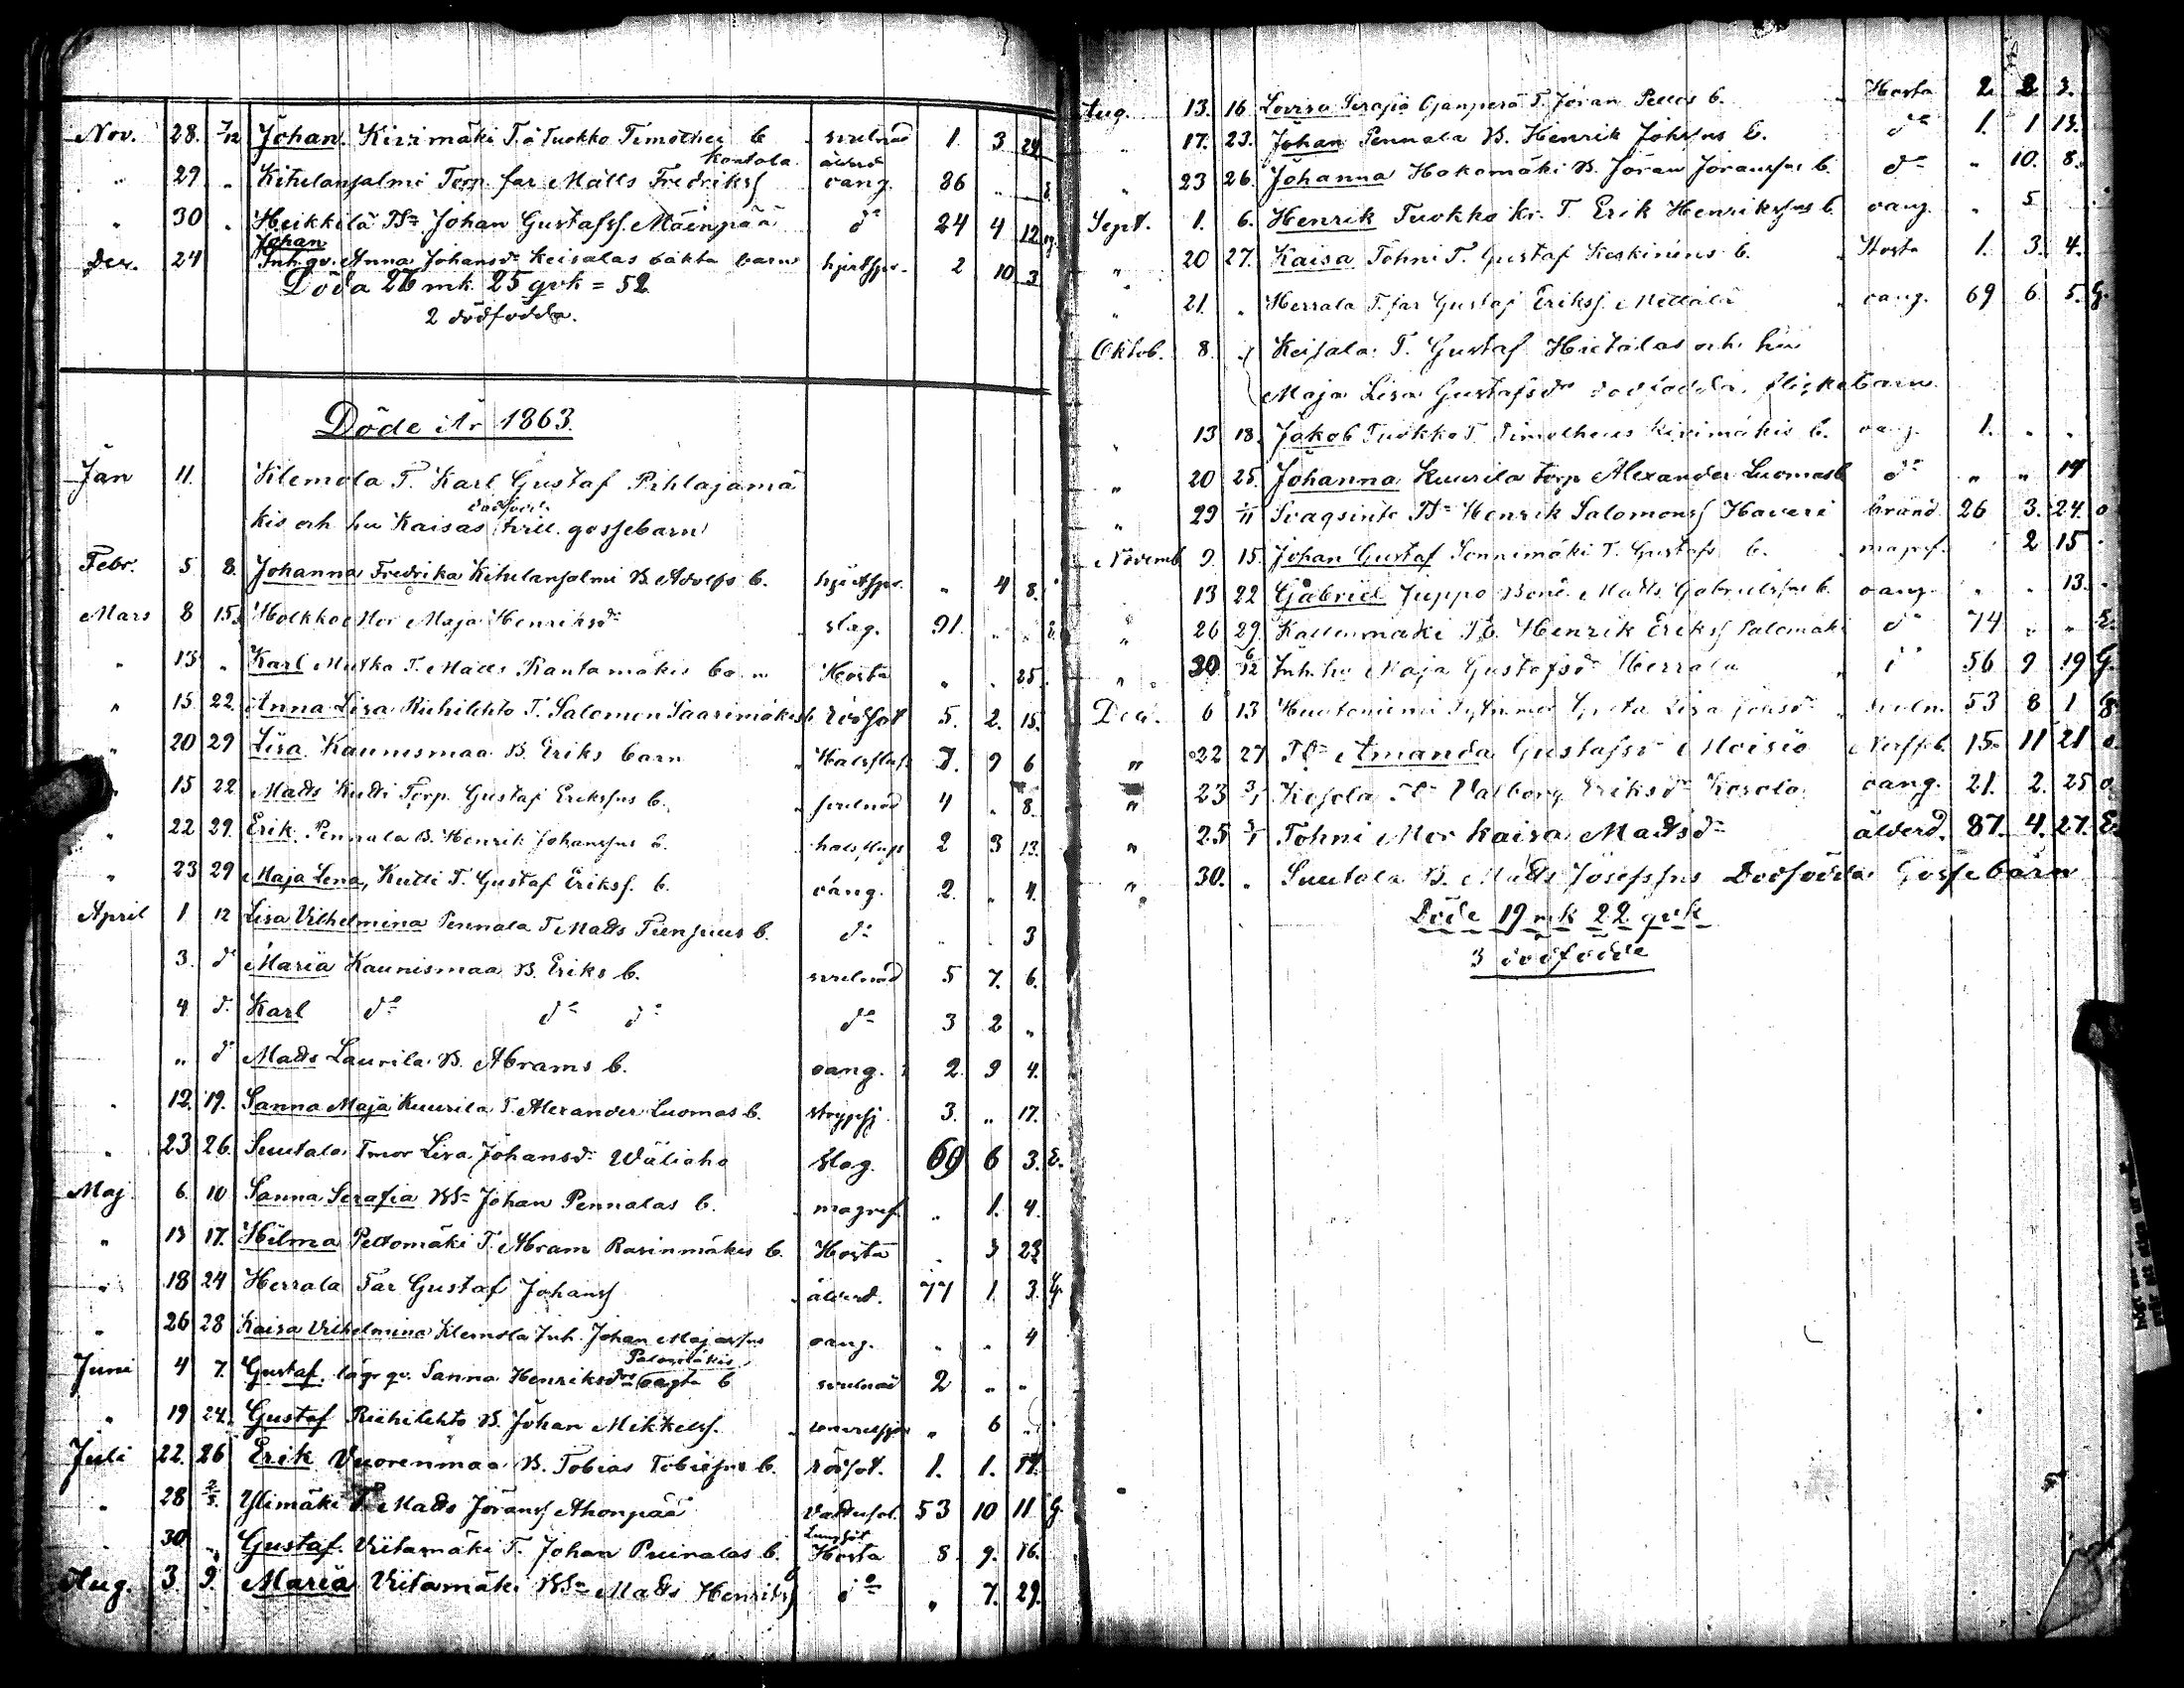 Nov. 28. 7/12 Johan Kivimäki T. å Tuokko Timothei b svulnad 1. 3 24
Kontola ålderd
" 29 " Kihelansalmi Torp. far Matts Fredrikss oäng. 86 " "
" 30 " Heikkilä Dr. Johan Gustafss. Mäenpää d:o 24 4 12
Johan
Dec. 24 Inh. qv. Anna Johansdr Keisalas oäkta barn 2 10 3
Döda 26 mk 25 qvk = 52
2 dödfödda.
Döde År 1863.
Jan 11. Klemola T. Karl Gustaf Pihlajamä
dödfödde
kis och hu Kaisas tvill. gossebarn
Febr. 5 8. Johanna Fredrika Kihelansalmi B. Adolfs b. " 4 8.
Mars 8 15. Holkko Mor Maja Henriksdr slag. 91. " "
" 13 " Karl Mutka T. Matts Rantamäkis barn Hosta " . 25.
" 15 22. Anna Lisa Riihilehto T. Salomon Saarimäkis b. rödsot 5. 2. 15.
" 20 29 Lisa Kaunismaa B. Eriks barn Halsfluss 7. 9 6
" 15 22 Matts Kutti Torp. Gustaf Erikssns b. svulnad 4 " 8.
" 22 29. Erik Pennala B. Henrik Johanssns b. halsfluss 2 3 13.
" 23 29 Maja Lena, Kutti T. Gustaf Erikss. b. oäng. 2. " 4.
April 1 12 Lisa Vilhelmina Pennala T. Matts b. d:o . . 3
3. d:o Maria Kaunismaa B. Eriks b. svulnad 5 7. 6.
4 d:o Karl d:o d:o d:o d:o 3 2 "
" d:o Matts Laurila B. Abrams b. oäng. 2. 9 4.
" 12. 19. Sanna Maja Kuurila T. Alexander Luomas b. strypsj. 3. " 17.
" 23 26. Suutala Tmor Lisa Johansdr Wäliaho slag. 69 6 3. E.
Maj 6. 10 Sanna Serafia Johan Pennalas b. magref. " 1. 4.
" 13 17. Hilma Peltomäki T. Abram Rasinmäkis b. Hosta . 3 23
" 18 24 Herrala Far Gustaf Johanss ålderd. 77 1. 3. G.
" 26 28 Kaisa Vilhelmina Klemola Inh. Johan oäng. " " 4
Palomäkis
Juni 4 7. Gustaf lägr qv. Sanna Henriksdrs oägta b svulnad 2 " "
" 19 24. Gustaf Riihilehto B. Johan Mikkelss. " 6 "
Juli 22. 26 Erik Vuorenmaa B. Tobias Tobiassns b. rödsot. 1. 1. 17.
" 28 2/8. Ylimäki T. Matts Jöranss Ahonpää Vattusot. 53 10 11 G.
Lungsot
. 30 " Gustaf Viitamäki T. Johan b. Hosta 8 9. 16.
Aug. 3. 9. Maria Viitamäki Matts Henrikss d:o " 7. 29.
Aug. 13. 16 Lovisa Serafia T. Jöran b. Hosta 2. 2. 3.
" 17. 23. Johan Pennala B. Henrik Johssns b. d:o 1. 1 13.
" 23 26. Johanna Hakomäki B. Jöran Jöranssns b. d:o " 10. 8.
Sept. 1. 6. Henrik Tuokko kr. T. Erik Henrikssns b. oäng. " 5 .
" 20 27. Kaisa Tohni T. Gustaf Keskinens b. Hosta 1. 3. 4.
" 21. " Herrala T. far Gustaf Erikss. Mettälä oäng. 69 6. 5. G.
Oktob. 8. " Keisala T. Gustaf Hietalas och hu
Maja Lisa Gustafsdr dödfödda flickebarn
" 13 18. Jakob Tuokko T. Timotheus Kivimäkis b. oäng. 1. " "
" 20 25. Johanna Kuurila torp Alexander Luomas b d:o " " 14
" 29 1/11 Henrik Salomonss Haveri bränd 26 3. 24. o
Novemb 9 15. Johan Gustaf Sonnimäki T. Gustafs b. magref. 2 15
13 22 Gabriel Juppo Matts Gabrielssns b. oäng. . . 13.
" 26 29. Kallenmäki Henrik Erikss Palomäki d:o 74 " " E.
" 30 6/12 Inh. hu Maja Gustafsdr Herrala d:o 56 9 19 G.
Dec. 6 13 Greta Lisa svuln. 53 8 1 G
" 22 27 Amanda Gustafsdr Moisio Nerffeb. 15. 11 21 o.
" 23 3/1 Valborg Eriksdr oäng. 21. 2. 25 o.
" 25 3/1 Tohni Mor Kaisa Mattsdr ålderd. 87. 4. 27. E.
" 30. " Suutala B. Matts Josefssns Dödfödda Gossebarn
Döde 19 mk 22 qvk
3 dödfödde